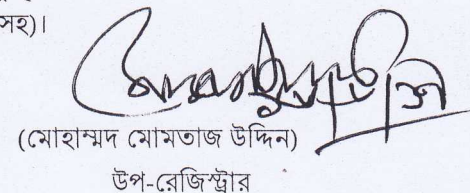 সহ)।
(মোহাম্মদ মোমতাজ উদ্দিন)
উপ-রেজিস্ট্রার